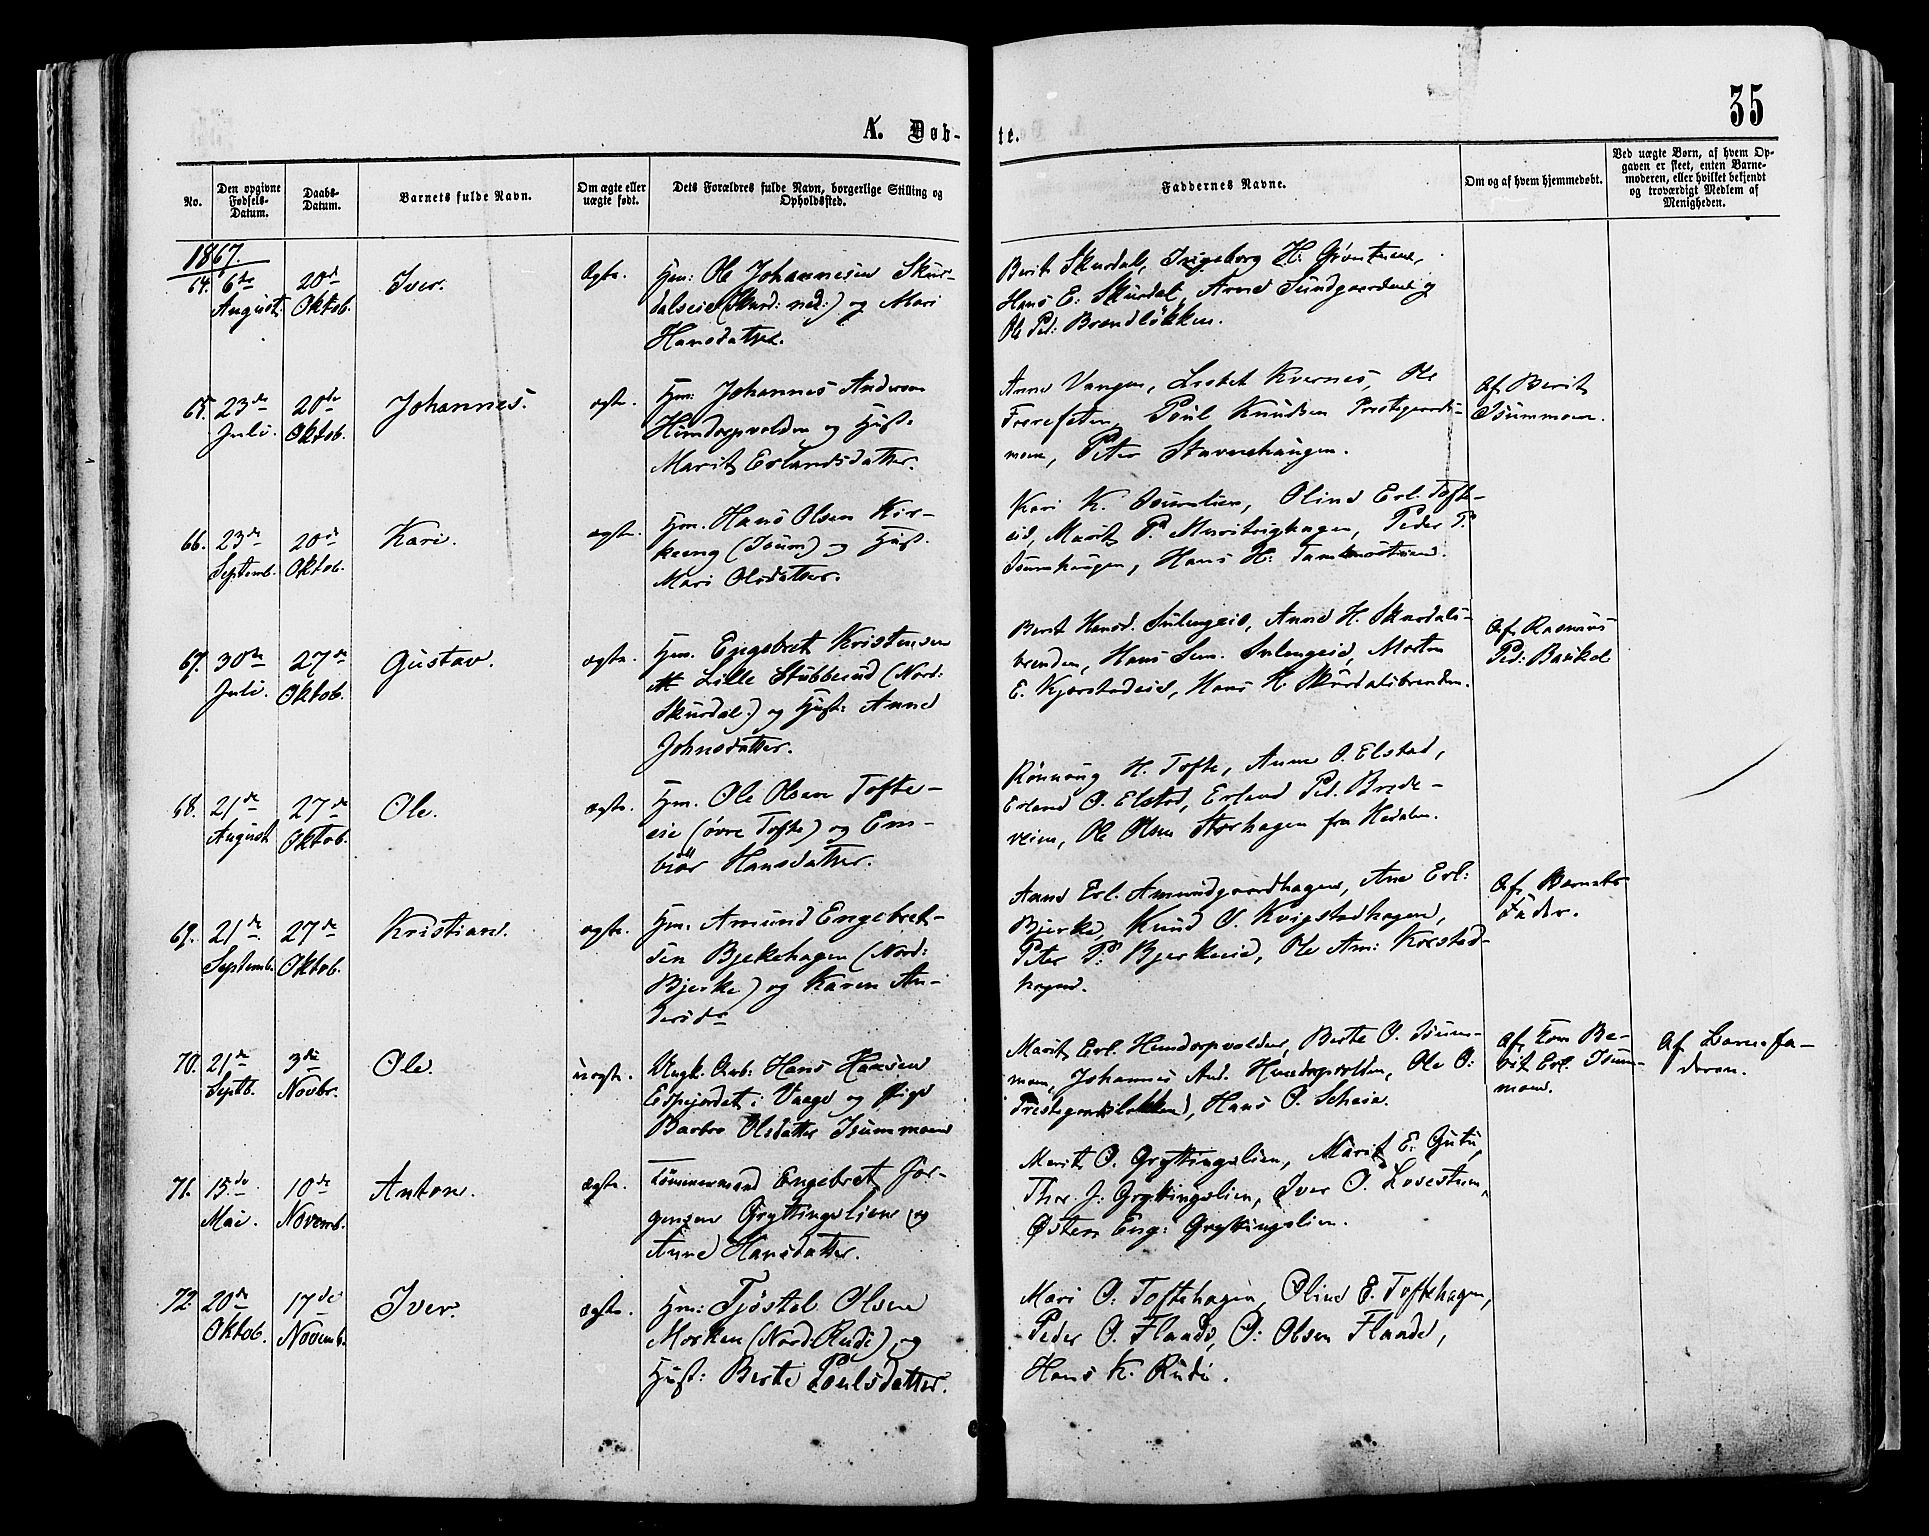 35
A. Døb-te.
No.
Den opgivne Fødsels-Datum.
Daabs-Datum.
Barnets fulde Navn.
Om ægte eller uægte født.
Dets Forældres fulde Navn, borgerlige Stilling og Opholdssted.
Faddernes Navne.
Om og af hvem hjemmedøbt.
Ved uægte Børn, af hvem Opgaven er skeet, enten Barnemoderen, eller hvilket bekjendt og troværdigt Medlem af Menigheden.
1867.
64. 6te August. 20de Oktob. Iver. Ægte.
Hm: Ole Johannesen Skur-
dalseie (Skurd: ned:) og Mari
Hansdatter.
Berit Skurdal, Ingeborg H:
Hans E. Skurdal, Anne Sundgaarden og
Ole Ped: Brændløkken.
65. 23de Juli. 20de Oktob. Johannes. ægte.
Hm: Johannes Andersen
Hundorpvolden og Hust.
Marit Erlandsdatter.
Anne Vangen, Lisbet Kvernes, Ole
Poul Knudsen Prestgaards-
moen, Peter Stavnehaugen.
Af Berit
Isummoen.
66. 23de Septemb. 20de Oktob. Kari. ægte.
Hm. Hans Olsen Kir-
keeng (Isum) og Hust.
Mari Olsdatter.
Kari K. Isumlien, Oline Erl. Tofte-
eie, Marit P. Peder P.
Isumhaugen, Hans H.
67. 30te Juli. 27de Oktob. Gustav. ægte.
Hm. Engebret Kristensen
Lille Stubberud (Nord:
Skurdal.) og Hust: Anne
Johnsdatter.
Berit Hansd. Anne H. Skurdals-
brenden, Hans Sem. Morten
E. Kjorstadeie, Hans H. Skurdalsbrenden.
Af Rasmus
Ped: Baukol
68. 21de August 27de Oktob. Ole. ægte.
Hm. Ole Olsen Tofte-
eie (øvre Tofte) og Em-
biør Hansdatter.
Rønnaug H. Tofte, Anne O. Elstad,
Erland O. Elstad, Erland Ped. Brede-
veien, Ole Olsen Storhagen fra Hedalen.
69. 21de Septemb. 27de Oktob. Kristian. ægte.
Hm. Amund Engebret-
sen Bjekehagen (Nord:
Bjerke) og Karen An-
dersdr
Anne Erl. Amundgaardhagen, Ane Erl:
Bjerke, Knud O. Kvigstadhagen,
Peter P: Bjerkeeie, Ole Am: Korstad-
hagen.
Af Barnets
Fader.
70. 21de Septb. 3die Novbr. Ole. uægte.
Ungk. Arb: Hans Hansen
i Vaage og Pige
Barbro Olsdatter Isummoen
Marit Erl. Hundorpvolden, Berte O. Isum-
moen, Johannes And. Hundorpvolden, Ole O:
Prestegaardsløkken, Hans O. Scheie.
Af Kone Be-
rit Erl. Isum-
moen.
Af Barnefa-
deren.
71. 15de Mai. 10de Novemb. Anton. ægte.
Tømmermand Engebret Jør-
gensen Gryttingslien og
Anne Hansdatter.
Marit O. Gryttingslien, Marit E. Gutu,
Thor J: Gryttingslien, Iver O.
Østen Eng: Gryttingslien.
72. 20de Oktob. 17de Novemb. Iver. ægte.
Hm: Tjøstel Olsen
Morken (Nord Rudi) og
Hust: Berte Poulsdatter.
Mari O: Toftehagen, Oline E. Toftehagen,
Peder O. Flaade, O: Olsen Flaade,
Hans K. Rudi.